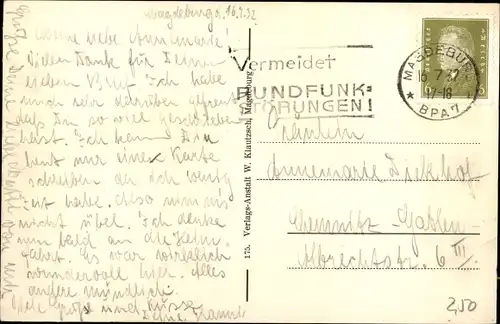 Magdeburg, 16.7.32
Meine liebe Annemarie!
Vielen Dank für Deinen
lieben Brief. Ich habe
mich sehr darüber gefreut
daß Du so viel geschrieben
hast. Ich kann Dir
heut nur eine Karte
schreiben da ich wenig
Zeit habe. Also nimm's
nicht übel. Ich denke
nun bald an die Heim-
fahrt. Es war wirklich
wundervoll hier. Alles
andere mündlich.
Viele Grüße und Küsse
Deine
Grüße Deine
175. Verlags-Anstalt W. Klautzsch, Magdeburg
Vermeidet
RUNDFUNK-
STÖRUNGEN!
MAGDEBURG
16.7.32
17-18
* BPA 7
6 6
Fräulein
Annemarie Dickhof
Chemnitz-Gablenz
Albrechtstr. 6 III
2,50